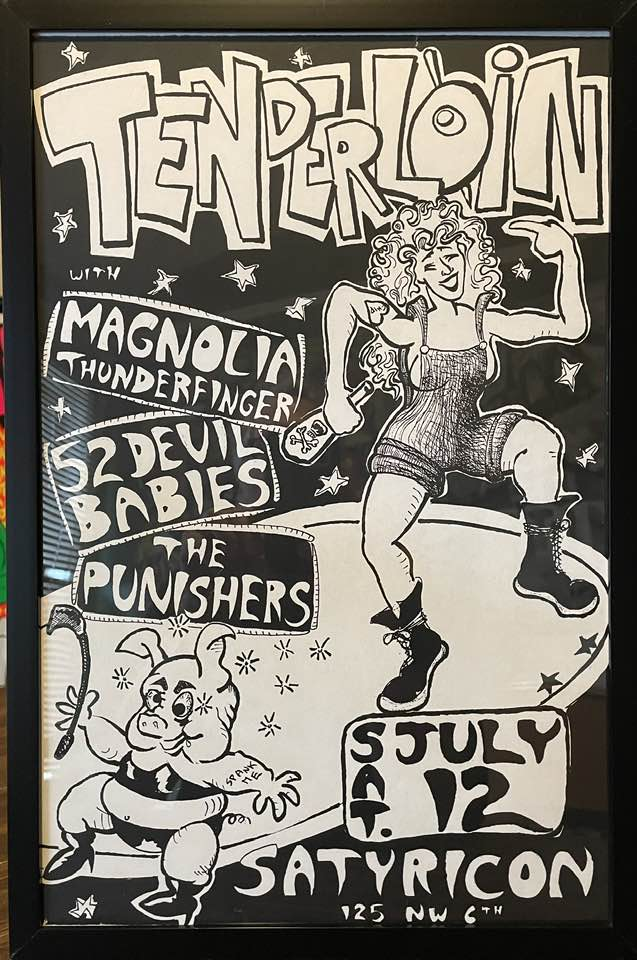 TENDERLOIN
WITH
MAGNOLIA
THUNDERFINGER
52 DEVIL
BABIES
THE
PUNISHERS
SPANK
ME
SAT. JULY
12
SATYRICON
125 NW 6TH